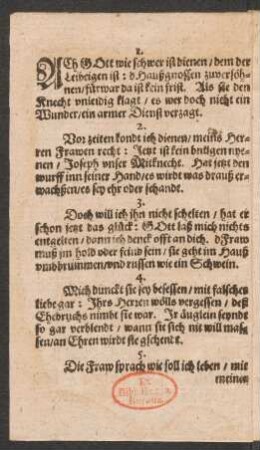 1.
ACh GOtt wie schwer ist dienen / dem der
Leibeigen ist : d Haußgnossen zuversöh-
nen / fürwar da ist kein frist. Als sie den
Knecht unleidig klagt / es wer doch nicht ein
Wunder / ein armer Dienst verzagt.
2.
Vor zeiten kondt ich dienen / meins Her-
ren Frawen recht : Jetzt ist kein
nen / Joseph unser Mitknecht. Hat jetzt den
wurff inn seiner Hand / es wirdt was drauß er-
wachßen / es sey ehr oder schandt.
3.
Doch will ich ihn nicht schelten / hat er
schon jetzt das glück : GOtt laß mich nichts
entgelten / dann ich denck offt an dich. d Fraw
muß jm hold oder feind sein / sie geht im Hauß
umb brummen / und russen wie ein Schwein.
4.
Mich dunckt sie sey besessen / mit falscher
liebe gar : Ihrs Herren wölls vergessen / deß
Ehebruchs nimbt sie war. Ir äuglein seyndt
so gar verblendt / wann sie sich nit will mas-
sen / an Ehren wirdt sie gschendt.
5.
Die Fraw sprach wie soll ich leben / mit
meinem